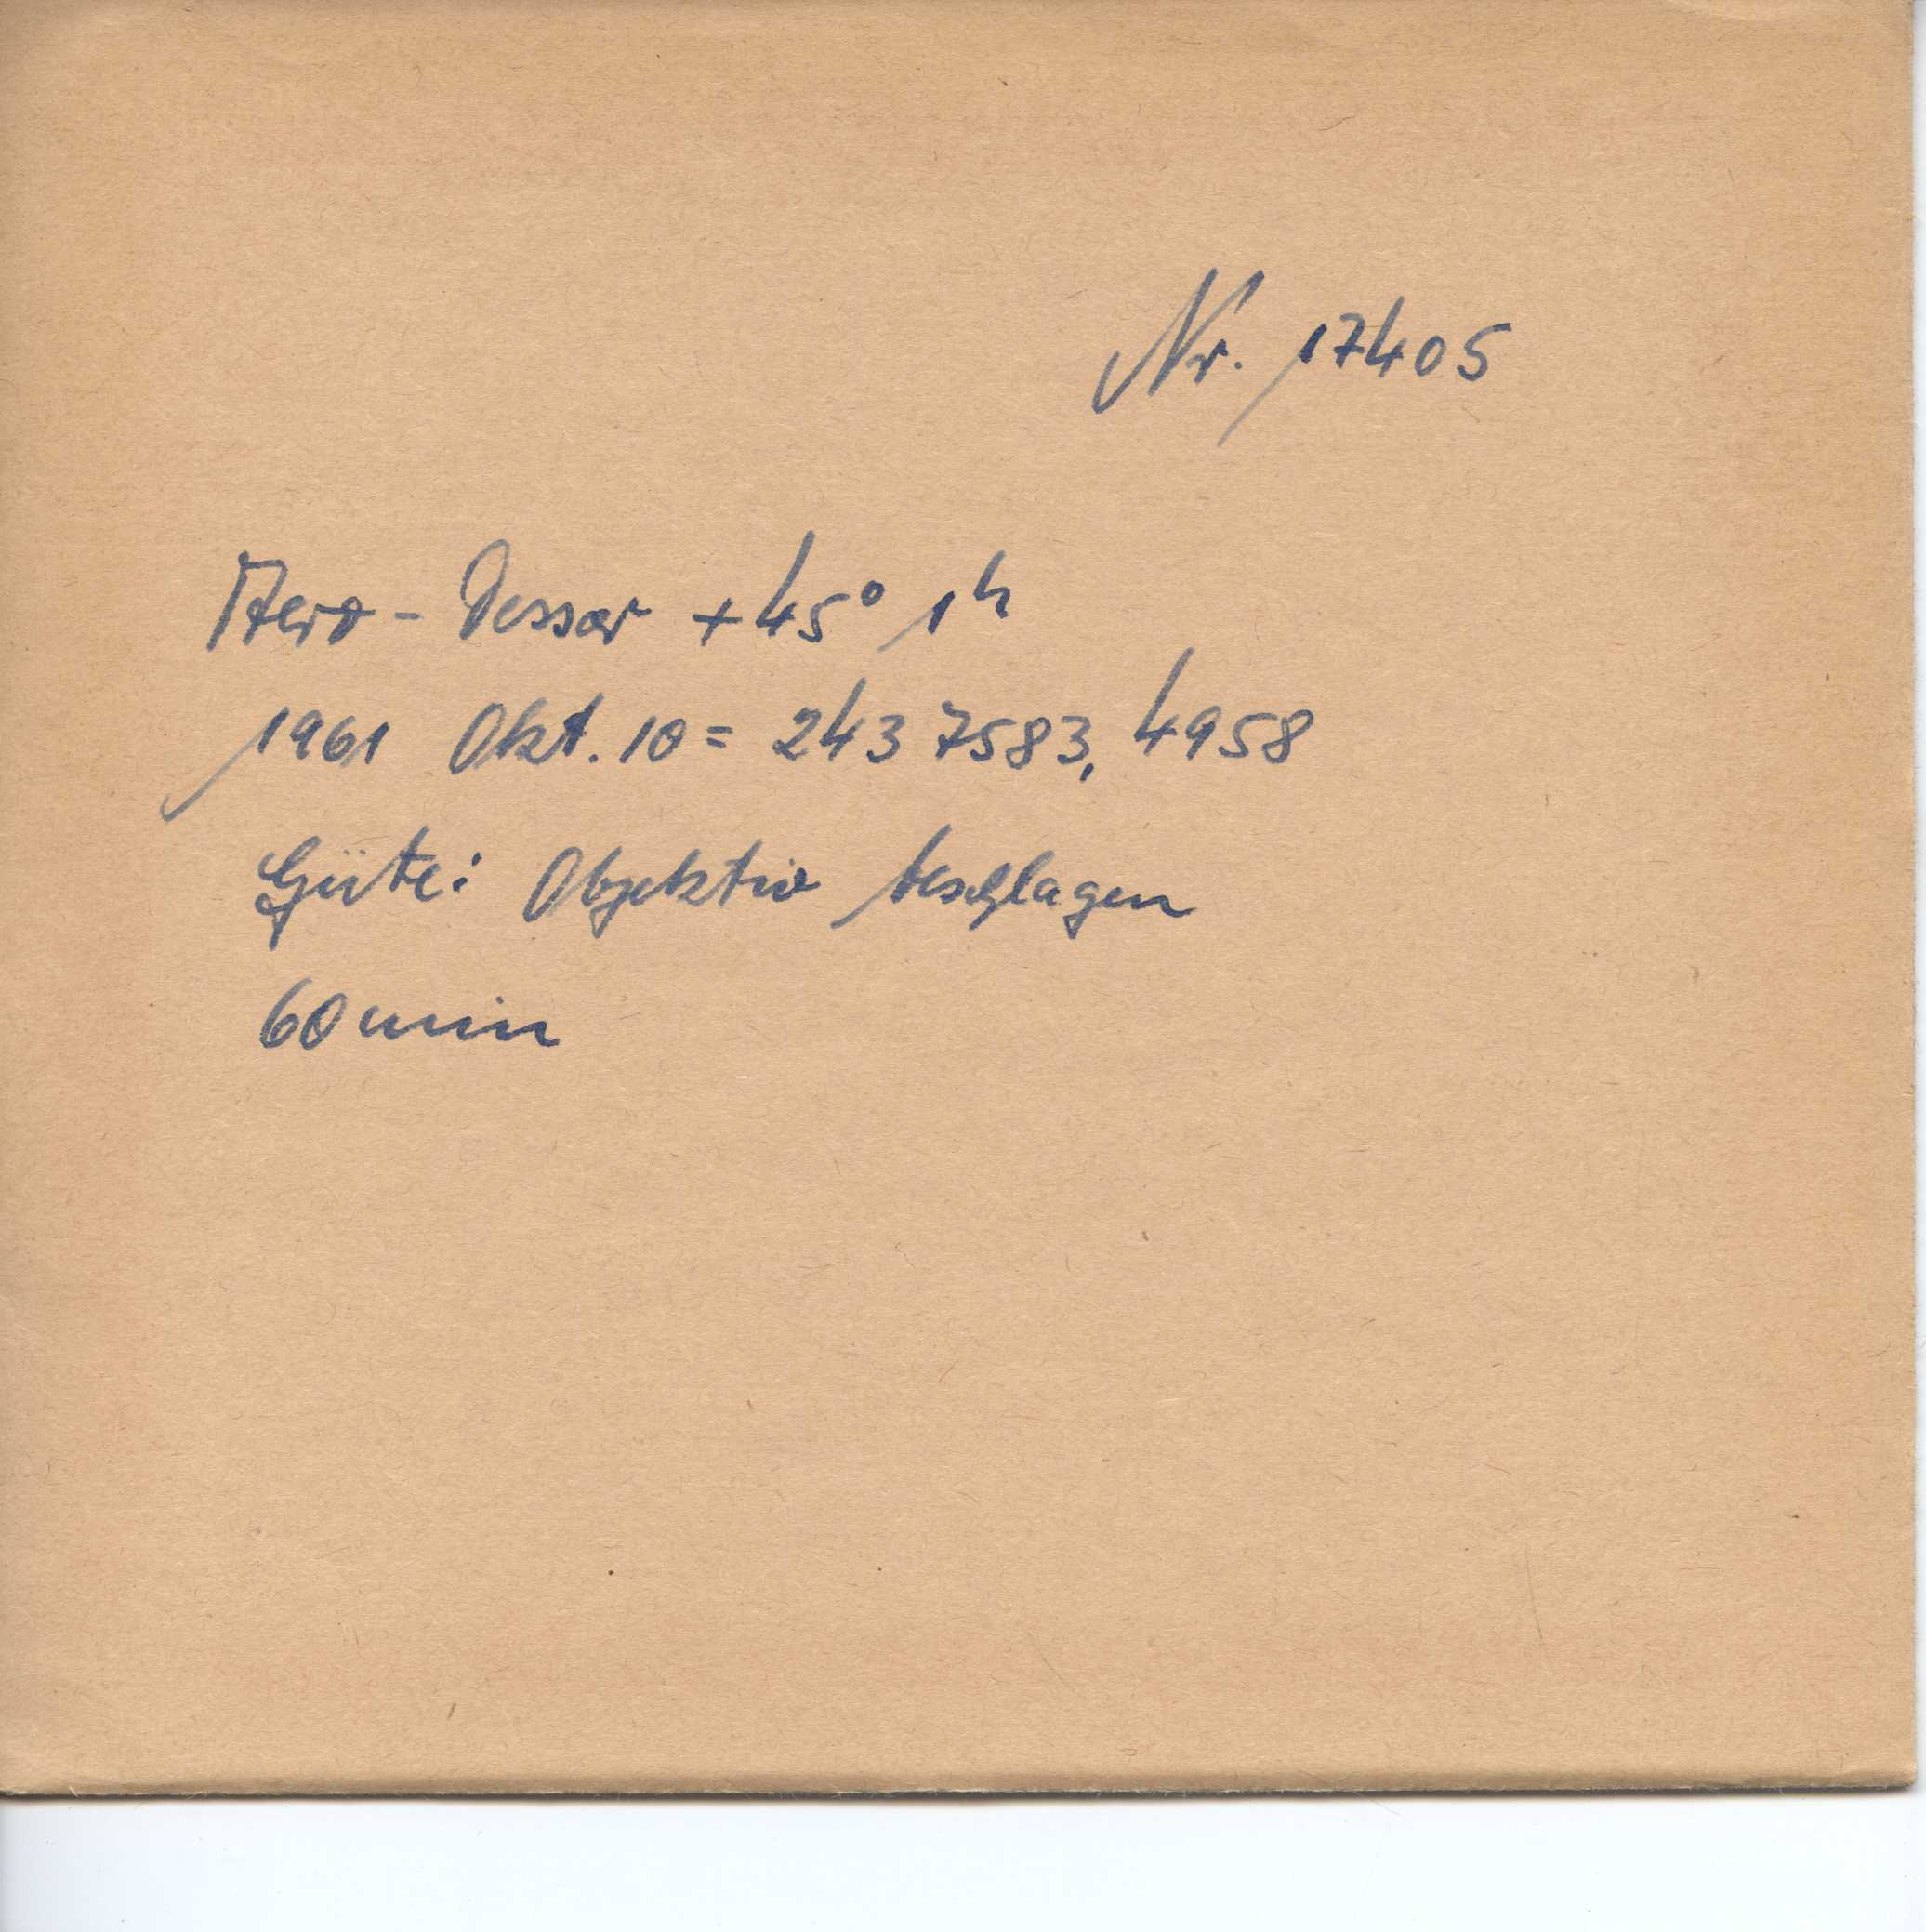 Nr. 17405
Aero-Tessar +45° 1h
1961 Okt. 10 = 243 7583,4958
Güte: Objektiv beschlagen
60 min